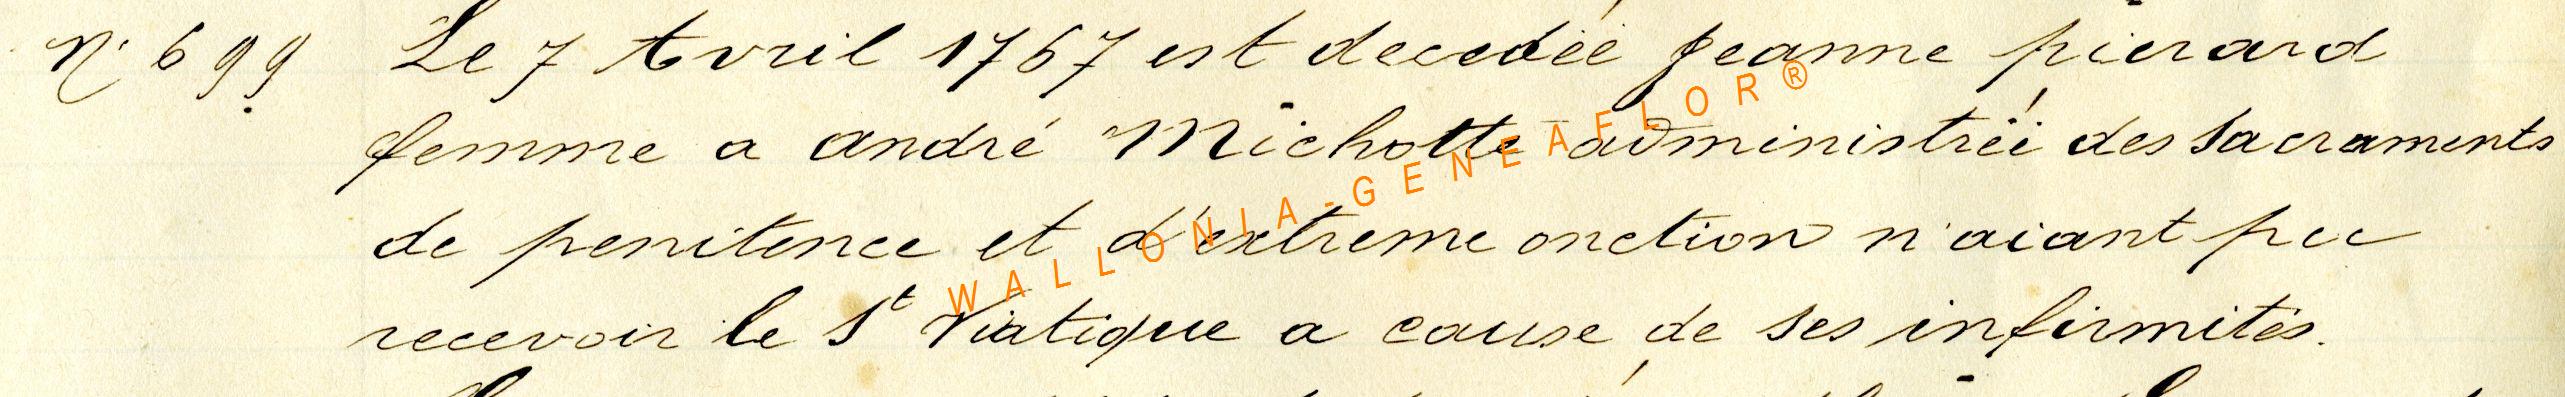 N° 699 Le 7 Avril 1767 est decedée Jeanne pierard
femme a andré Michotte administréé des sacraments
de penitence et d'extreme onction n'aiant pu
recevoir le St Viatique a cause de ses infirmités.
WALLONIA-GENEAFLOR®